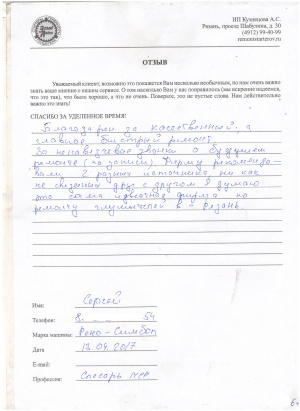 ИП Кузнецова А.С.
Рязань, проезд Шабулина, д. 30
(4912) 99-40-99
remontstarterov.ru
ОТЗЫВ
Уважаемый клиент, возможно это покажется Вам несколько необычным, но нам очень важно
знать ваше мнение о нашем сервисе. О том насколько Вам у нас понравилось (мы искренне надеемся,
что это так), что было хорошо, а что не очень. Поверьте, это не пустые слова. Нам действительно
важно это знать!
СПАСИБО ЗА УДЕЛЕННОЕ ВРЕМЯ!
Благодарен за качественный, а
главное быстрый ремонт.
За ненавязчивые звонки о будущем
ремонте (по записи). Фирму рекомендо-
вали 2 разных источника ни как
не связанных друг с другом. Я думаю
это самая известная фирма по
ремонту в г. Рязань.
Имя: Сергей
Телефон: 8 54
Марка машины: Рено-Симбол
Дата 13.04.2017
E-mail:
Профессия: Слесарь